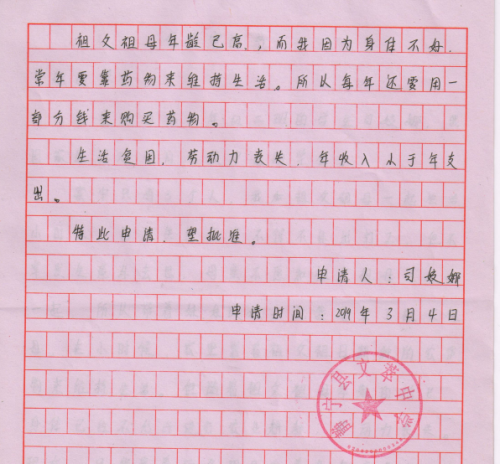 祖父祖母年龄已高,而我因为身体不好,
常年要靠药物来维持生活。所以每年还要用一
部分钱来购买药物。
生活贫困,劳动力丧失,年收入小于年支
出。
特此申请,望批准。
申请人:司姣娜
申请时间:2019年3月4日
宁县文萃中学